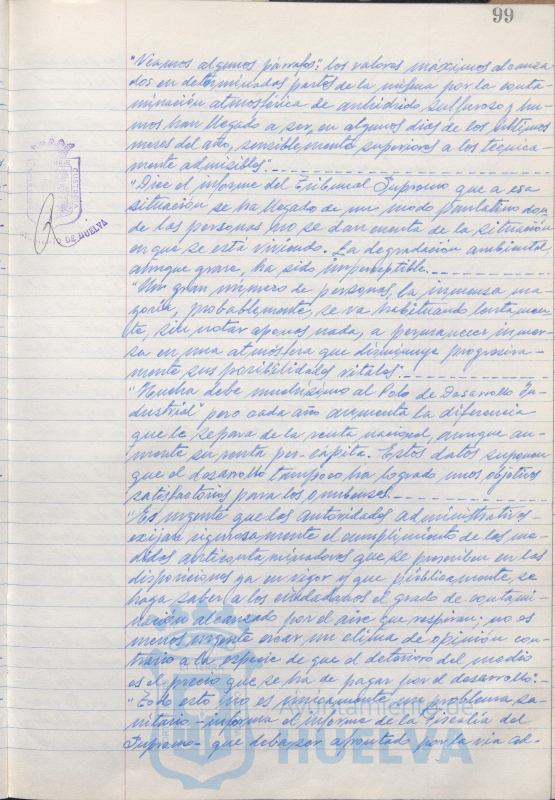 99
"Veamos algunos párrafos": los valores máximos alcanza
dos en determinadas partes de la misma por la conta
minación atmosférica de anhidrido sulfuroso y hu
mos han llegado a ser, en algunos dias de los últimos
meses del año, sensiblemente superiores a los técnica-
mente admisibles".
"Dice el informe del Tribunal Supremo que a esa
situación se ha llegado de un modo paulatino don
de las personas no se dan cuenta de la situación
en que se está viviendo. La degradación ambiental
aunque grave, ha sido imperceptible.
"Un gran número de personas, la inmensa ma-
yoria, probablemente, se va habituando lentamen
te, sin notar apenas nada, a permanecer inmer-
sa en una atmósfera que disminuye progresiva-
mente sus posibilidades vitales".
"Huelva debe muchísimo al Polo de Desarrollo In-
dustrial" pero cada año aumenta la diferencia
que le separa de la renta nacional, aunque au-
mente su renta per-cápita. Estos datos suponen
que el desarrollo tampoco ha logrado unos objetivos
satisfactorios para los onubenses.
"Es urgente que las autoridades administrativas
exijan rigurosamente el cumplimiento de las me-
didas anticontaminadoras que se prescriben en las
disposiciones ya en vigor y que públicamente, se
haga saber a los ciudadanos el grado de contami-
nación alcanzado por el aire que respiran; no es
menos urgente crear un clima de opinión con-
trario a la especie de que el deterioro del medio
es el precio que se ha de pagar por el desarrollo".-
"Todo esto no es únicamente un problema sa-
nitario - informa el informe de la Fiscalia del
Supremo - que deba ser afrontado por la via ad-
DE HUELVA
Ayuntamiento de
HUELVA